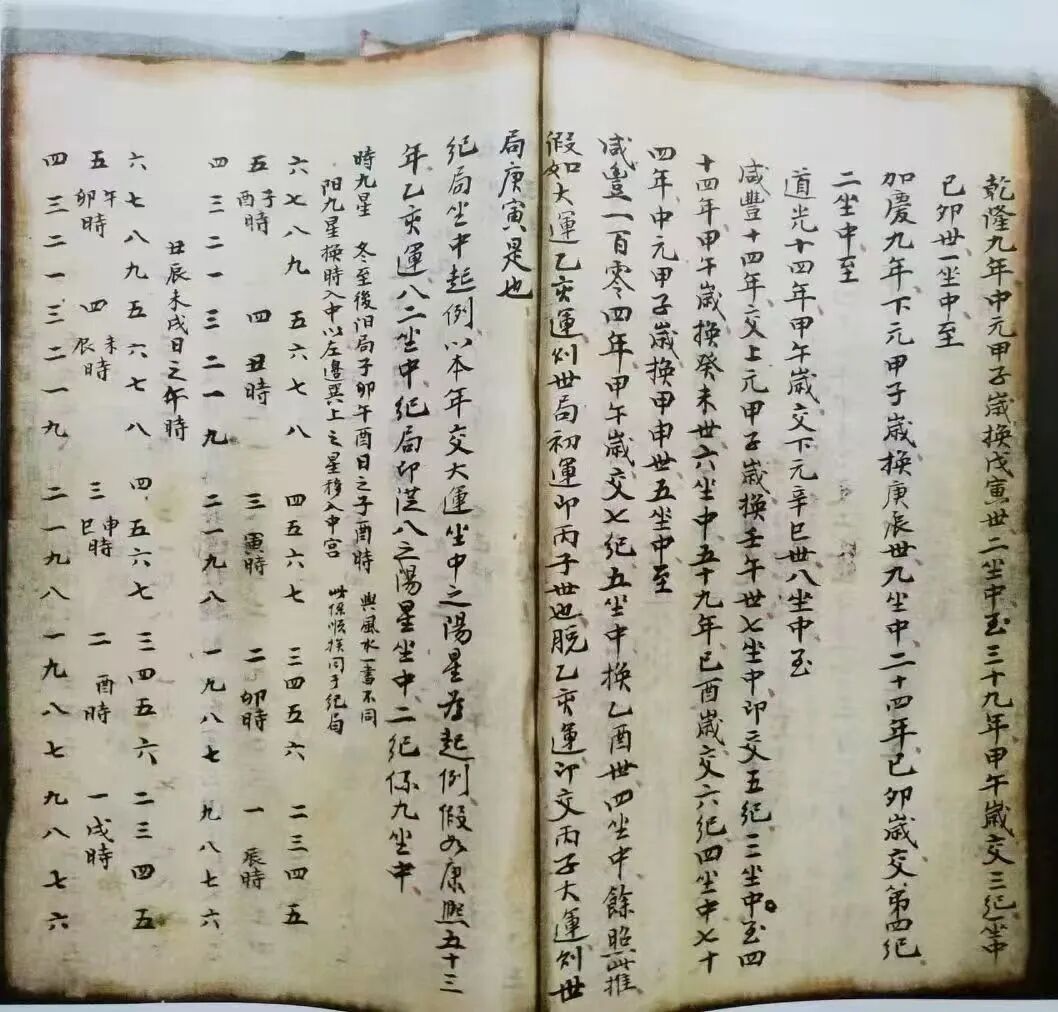 乾隆九年中元甲子歲換戊寅世二坐中至三十九年甲午歲交三紀坐中
已卯世一坐中至
加慶九年下元甲子歲換庚辰世九坐中二十四年已卯歲交第四紀
二坐中至
道光十四年甲午歲交下元辛巳世八坐中至
咸豐十四年交上元甲子歲換壬午世七坐中即交五紀三坐中至四
十四年甲午歲換癸未世六坐中五十九年已酉歲交六紀四坐中七十
四年中元甲子歲換甲申世五坐中至
咸豊一百零四年甲午歲交七紀五坐中換乙酉世四坐中餘照此推
假如大運乙亥運則世局初運即丙子世也脱乙亥運即交丙子大運則世
局庚寅是也
紀局坐中起例以本年交大運坐中之陽星為起例假如康熙五十三
年乙亥運八二坐中紀局即從八之陽星坐中二紀係九坐中
時九星 冬至後汨局子卯午酉日之子酉時 與風水一書不同
阳九星換時入中以左邊巽上之星移入中宮 此係順挨同于紀局
六七八九 五六七八 四五六七 三四五六 二三四五
五子酉時 四丑時 三寅時 二卯時 一辰時
四三二一 三二一九 二一九八 一九八七 九八七六
丑辰未戌日之午時
六七八九 五六七八 四五六七 三四五六 二三四五
五午卯時 四未辰時 三申巳時 二酉時 一戌時
四三二一 三二一九 二一九八 一九八七 九八七六